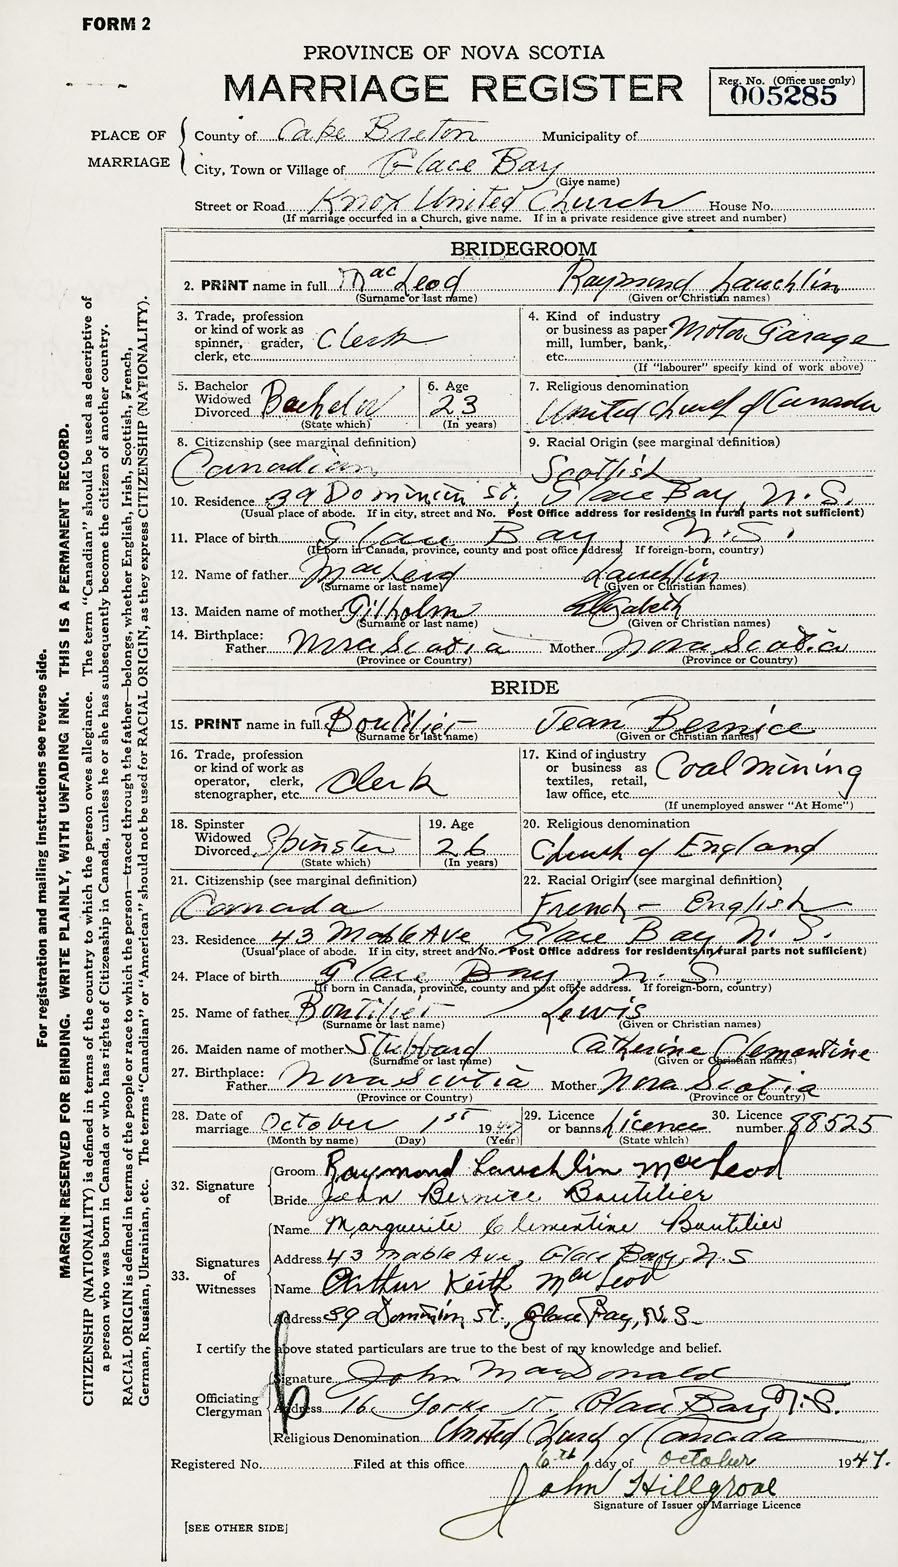 FORM 2
PROVINCE OF NOVA SCOTIA
MARRIAGE REGISTER
Reg. No. (Office use only)
005285
PLACE OF MARRIAGE
County of Cape Breton Municipality of
City, Town or Village of Glace Bay
(Give name)
Street or Road Knox United Church House No.
(If marriage occurred in a Church, give name. If in a private residence give street and number)
BRIDEGROOM
2. PRINT name in full MacLeod Raymond Lauchlin
(Surname or last name) (Given or Christian names)
3. Trade, profession or kind of work as spinner, grader, clerk, etc. Clerk
4. Kind of industry or business as paper mill, lumber, bank, etc. Motor Garage
(If "labourer" specify kind of work above)
5. Bachelor Widowed Divorced Bachelor
(State which)
6. Age 23
(In years)
7. Religious denomination
United Church of Canada
8. Citizenship (see marginal definition)
Canadian
9. Racial Origin (see marginal definition)
Scottish
10. Residence 39 Dominion St. Glace Bay, N.S.
(Usual place of abode. If in city, street and No. Post Office address for residents in rural parts not sufficient)
11. Place of birth Glace Bay N.S.
(If born in Canada, province, county and post office address. If foreign-born, country)
12. Name of father MacLeod Lauchlin
(Surname or last name) (Given or Christian names)
13. Maiden name of mother Gilholm Elizabeth
(Surname or last name) (Given or Christian names)
14. Birthplace:
Father Nova Scotia Mother Nova Scotia
(Province or Country) (Province or Country)
BRIDE
15. PRINT name in full Boutilier Jean Bernice
(Surname or last name) (Given or Christian names)
16. Trade, profession or kind of work as operator, clerk, stenographer, etc. Clerk
17. Kind of industry or business as textiles, retail, law office, etc. Coal Mining
(If unemployed answer "At Home")
18. Spinster Widowed Divorced Spinster
(State which)
19. Age 26
(In years)
20. Religious denomination
Church of England
21. Citizenship (see marginal definition)
Canada
22. Racial Origin (see marginal definition)
French - English
23. Residence 43 Mable Ave Glace Bay N.S.
(Usual place of abode. If in city, street and No. Post Office address for residents in rural parts not sufficient)
24. Place of birth Glace Bay N.S
(If born in Canada, province, county and post office address. If foreign-born, country)
25. Name of father Boutilier Lewis
(Surname or last name) (Given or Christian names)
26. Maiden name of mother Stubbard Catherine Clementine
(Surname or last name) (Given or Christian names)
27. Birthplace:
Father Nova Scotia Mother Nova Scotia
(Province or Country) (Province or Country)
28. Date of marriage October 1st 1947
(Month by name) (Day) (Year)
29. Licence or banns licence
(State which)
30. Licence number 88525
32. Signature of
Groom Raymond Lauchlin MacLeod
Bride Jean Bernice Boutilier
33. Signatures of Witnesses
Name Marguerite Clementine Boutilier
Address 43 Mable Ave, Glace Bay, N.S
Name Arthur Keith MacLeod
Address 39 Dominion St., Glace Bay, N.S.
I certify the above stated particulars are true to the best of my knowledge and belief.
Officiating Clergyman
Signature John MacDonald
Address 16 Yorke St. Glace Bay N.S.
Religious Denomination United Church of Canada
Registered No. Filed at this office 6th day of October 1947.
John Hillgrove
Signature of Issuer of Marriage Licence
[SEE OTHER SIDE]
For registration and mailing instructions see reverse side.
MARGIN RESERVED FOR BINDING. WRITE PLAINLY, WITH UNFADING INK. THIS IS A PERMANENT RECORD.
CITIZENSHIP (NATIONALITY) is defined in terms of the country to which the person owes allegiance. The term "Canadian" should be used as descriptive of
a person who was born in Canada or who has rights of Citizenship in Canada, unless he or she has subsequently become the citizen of another country.
RACIAL ORIGIN is defined in terms of the people or race to which the person—traced through the father—belongs, whether English, Irish, Scottish, French,
German, Russian, Ukrainian, etc. The terms "Canadian" or "American" should not be used for RACIAL ORIGIN, as they express CITIZENSHIP (NATIONALITY).